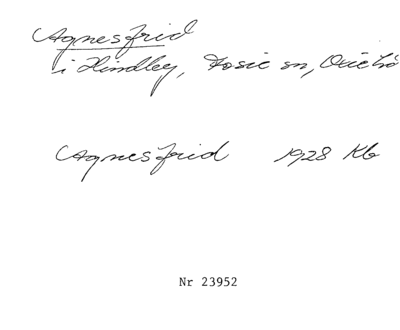 Agnesfrid
i Hindley, Fosie sn, Oxie hd
Agnesfrid 1928 Kb
Nr 23952